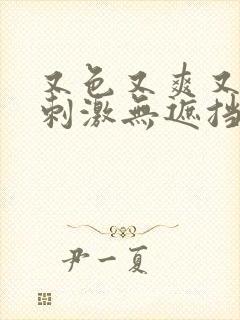 又色又爽又
刺激無遮挡
尹一夏